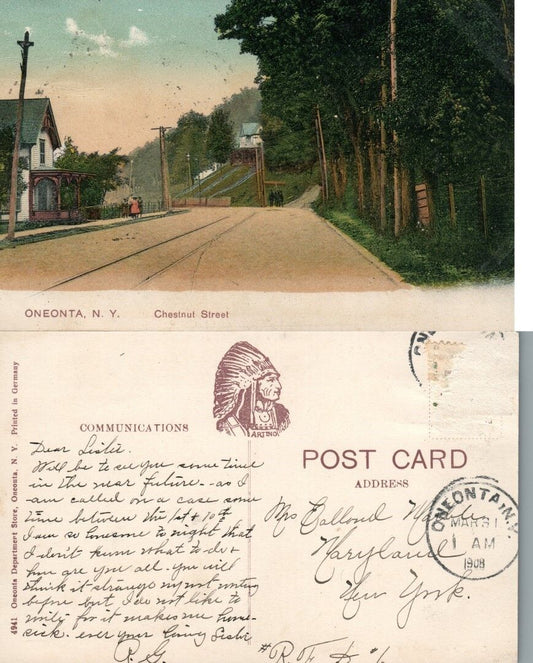 ONEONTA, N. Y. Chestnut Street
4941 Oneonta Department Store, Oneonta, N. Y. Printed in Germany
COMMUNICATIONS
Dear Sister.
Will be to see you some time
in the near future - as I
am called on a case some
time between the 1st & 10th
I am so lonesome to night that
I don't know what to do &
how are you all. you will
think it strange my not writing
before but I do not like to
write for it makes me home-
sick. ever your loving Sister
R. G.
ARTINO
POST CARD
ADDRESS
ON
ONEONTA, N.Y.
MAR 31
1 AM
1908
Mrs
Maryland
New York.
# R. F. D. #